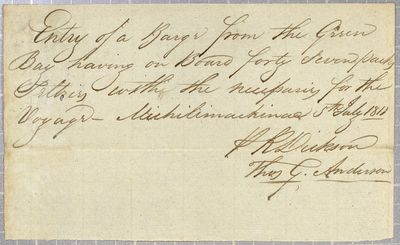 Entry of a Barge from the Green
Bay having on Board forty Seven packs
Peltries with the necessaries for the
Voyage – Michilimackinac 5th July 1814
R Dickson
Thos G. Anderson